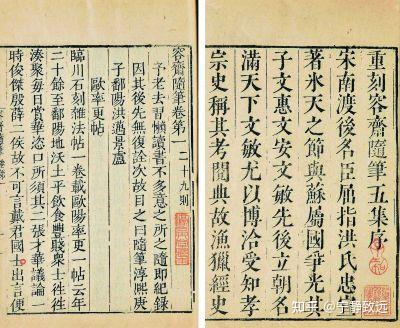 重刻容齋隨筆五集序
宋南渡後名臣屈指洪氏忠
著氷天之節與蘇屬國爭光
子文惠文安文敏先後立朝名
滿天下文敏尤以博洽受知孝
宗史稱其考閱典故漁獵經史
容齋隨筆卷第一二十九則
予老去習懶讀書不多意之所之隨即紀錄
因其後先無復詮次故目之曰隨筆淳熙庚
子鄱陽洪邁景盧
歐率更帖
臨川石刻雜法帖一卷載歐陽率更一帖云年
二十餘至鄱陽地沃土平飲食豐賤衆士往往
湊聚每日賞華恣口所須其二張才華議論一
時俊傑殷薛二侯故不可言戴君國士出言便
知乎 @宁静致远